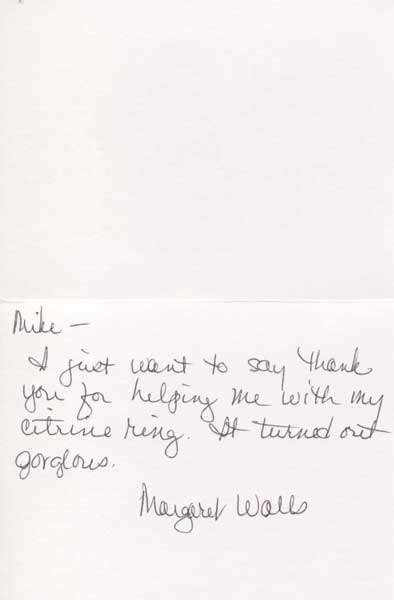 Mike —
I just want to say thank
you for helping me with my
citrine ring. It turned out
gorgeous.
Margaret Walls